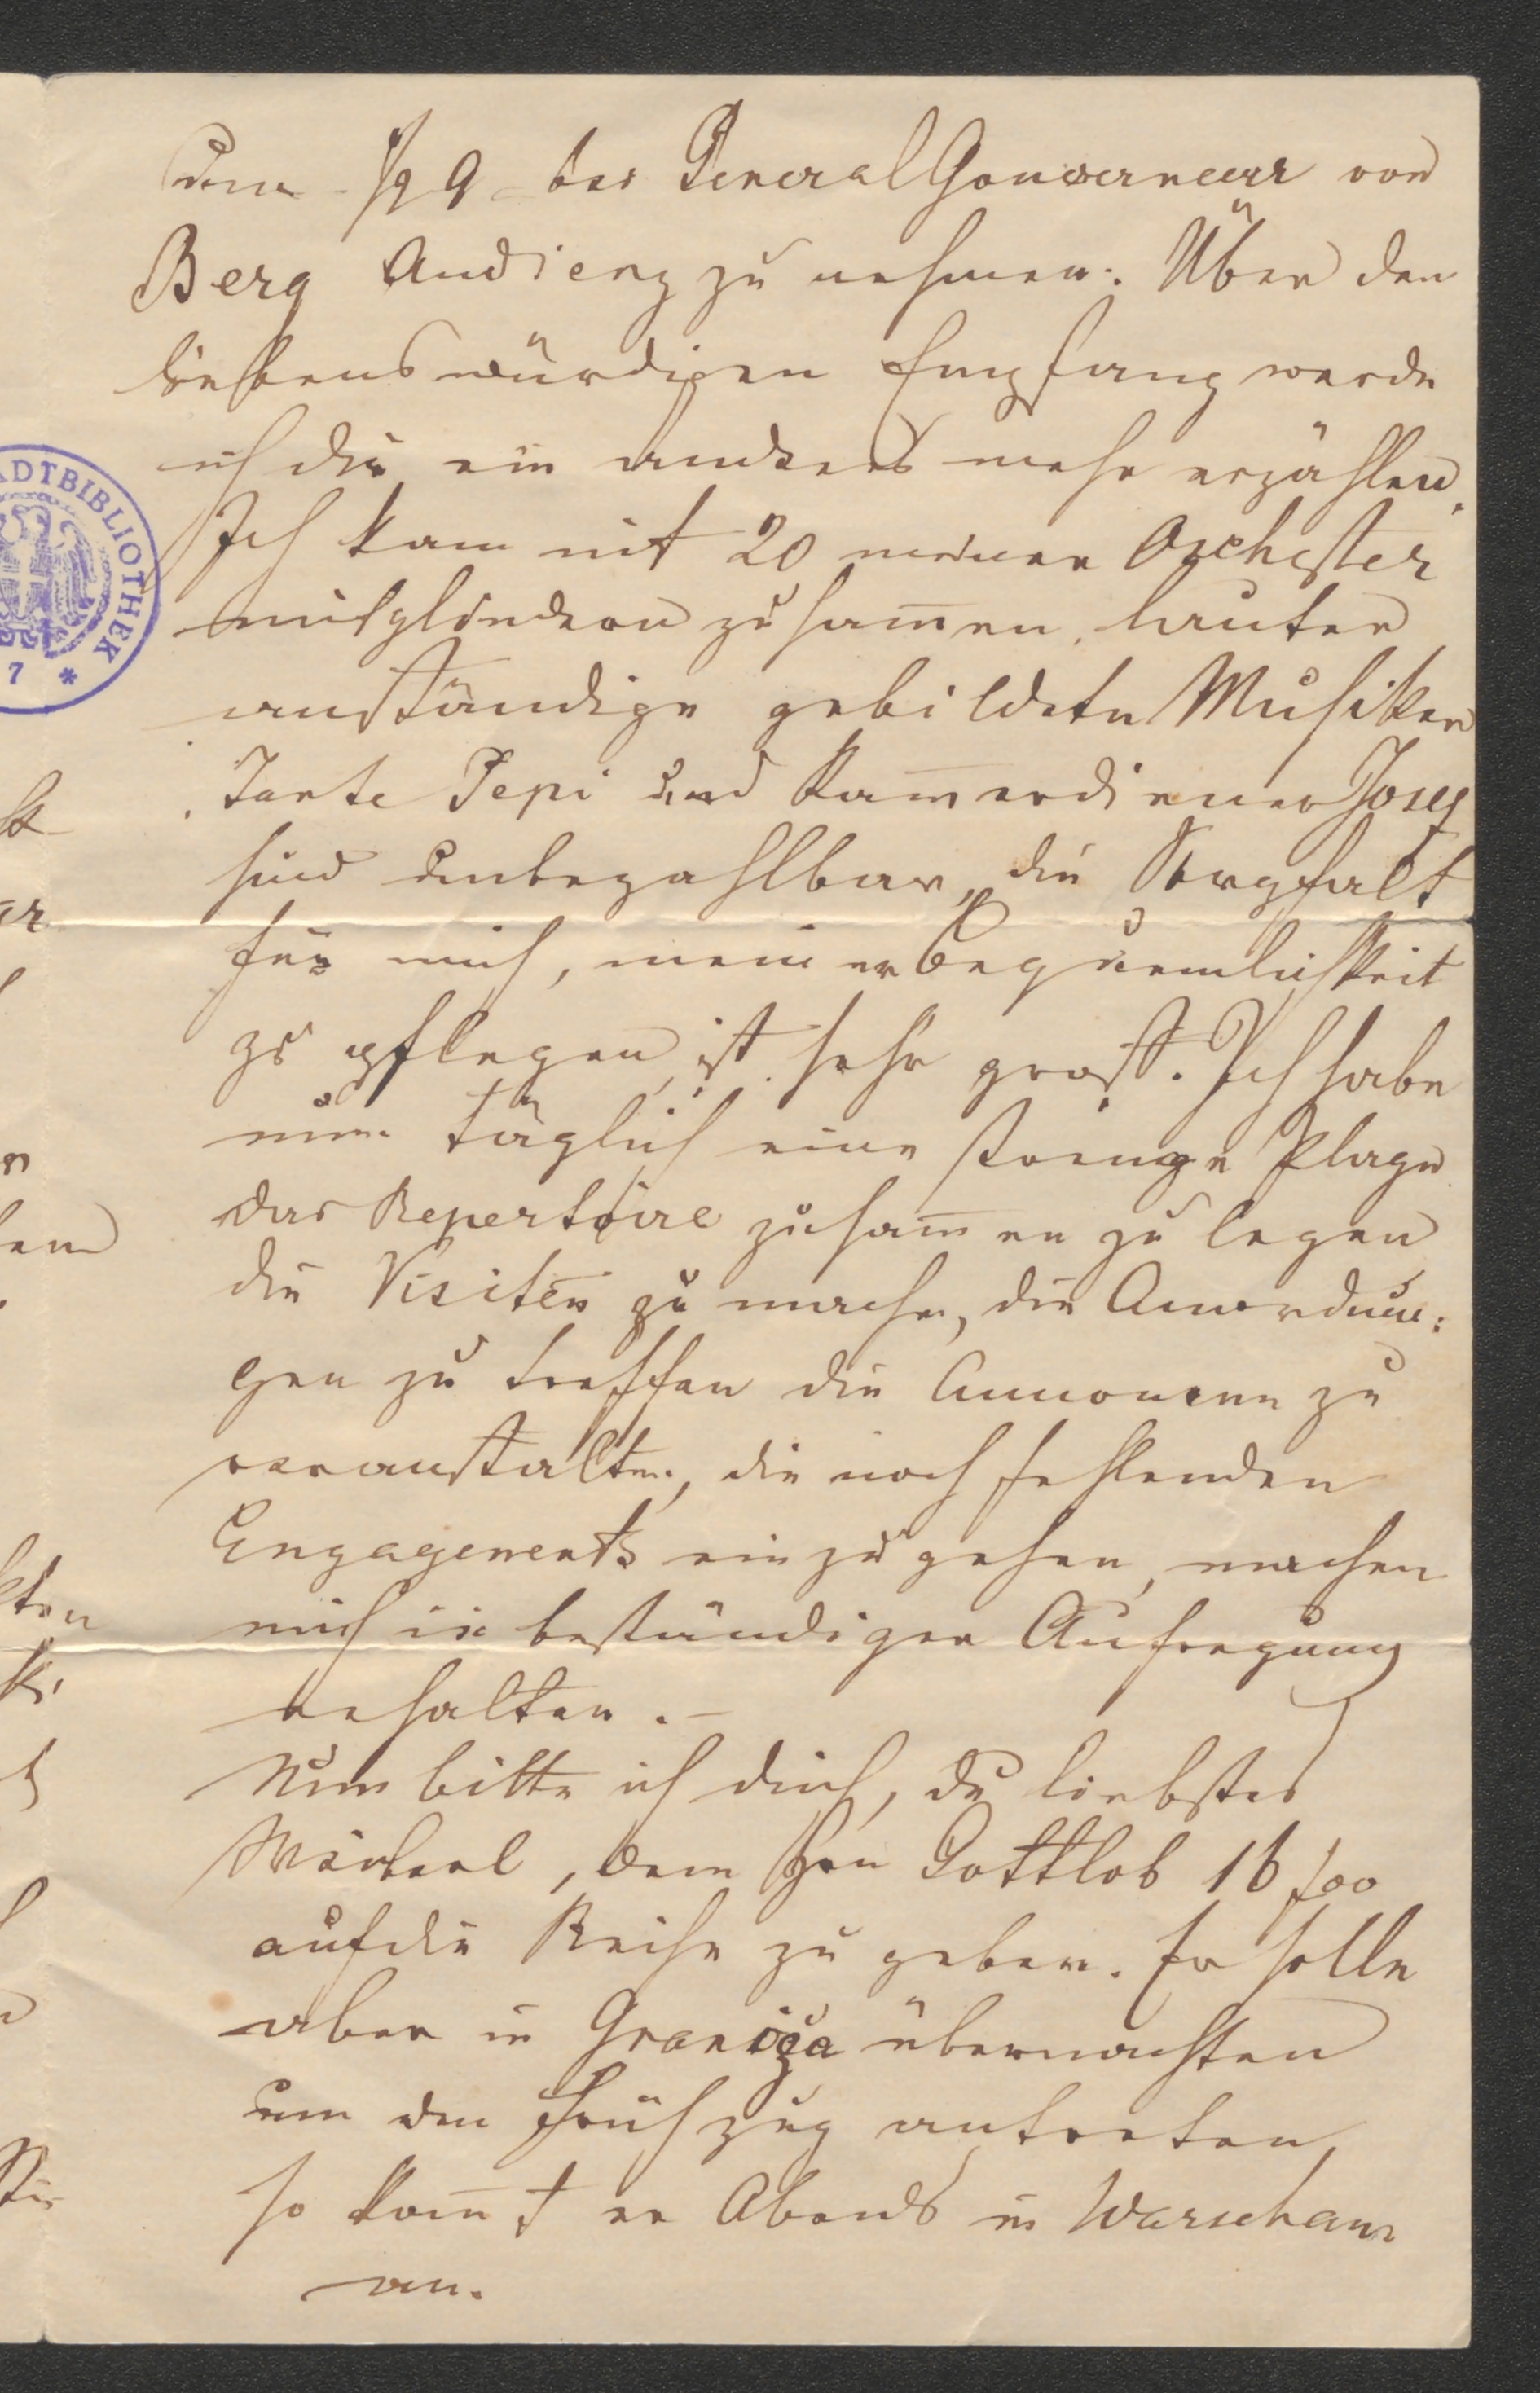 um ½ 9 bei General Gouverneur von
Berg Audienz zu nehmen. Über den
liebenswürdigen Empfang werde
ich dir ein anders mehr erzählen.
Ich kam mit 20 meiner Orchester
mitgliedern zusam̅en, lauter
anständige gebildete Musiker
Tante Pepi und Kam̅erdiener Josef
sind unbezahlbar, die Sorgfalt
für mich, meiner Bequemlichkeit
zu pflegen, ist sehr groß. Ich habe
nun täglich eine strenge Plage
das Repertoire zusam̅en zu legen
die Visiten zu machen, die Anordnun:
gen zu treffen die Annoncen zu
veranstalten, die noch fehlenden
Engagements einzugehen, machen
mich in beständiger Aufregung
erhalten.–
Nun bitte ich dich, du liebstes
Weiberl, dem Hrn Gottlob 16 f 00
auf die Reise zu geben. Er solle
aber in Graniza übernachten
um den Frühzug antreten,
so kom̅t er Abends in Warschau
an.
ADTBIBLIOTHEK
7 *